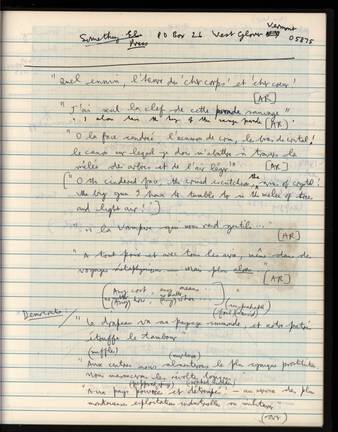 Something Else Press PO Box 26 West Glover Vermont 05875
"Quel ennui, l'heure du 'cher corps' et 'cher coeur'
[AR]
"J'ai seul la clef de cette parade sauvage"
"I alone have the key of the savage parade [AR]
"O la face cendrée, l'écusson de crin, les bras de cristal!
le canon sur lequel je dois m'abattre à travers la
mêlée des arbres et de l'air léger!" [AR]
("O the cindered face, the escutcheon, the arms of crystal!
the big gun I have to tumble to in the mêlée of trees
and light air!")
la Vampire qui nous rend gentils..."
[AR]
"A tout prix et avec tous les airs, même dans des
voyages métaphysiques — Mais plus alors"
[AR]
(Any cost, any means
(Any how, any where
Democratie/ "Le drapeau va au paysage immonde, et notre patois
étouffe le tambour"
(muffles)
"Aux centres nous alimenterons la plus cynique prostitution.
Nous massacrerons les révoltes logiques.
"Aux pays poivrés et détrempés! — au service des plus
monstrueuses exploitations industrielles ou militaires